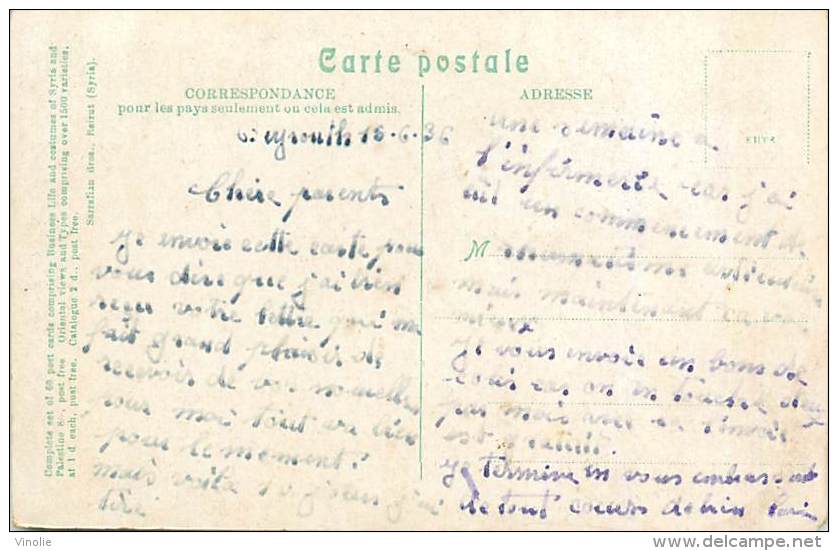 Complete set of 60 post cards comprising Business Life and costumes of Syria and
Palestine 8/-, post free. Oriental views and Types comprising over 1500 varieties,
at 1 d. each, post free. Catalogue 2 d., post free.
Sarrafian Bros., Beirut (Syria).
Carte postale
CORRESPONDANCE
pour les pays seulement ou cela est admis.
ADRESSE
M
Beyrouth 15-6-36
Chère parents
Je envoie cette carte pour
vous dire que j'ai bien
reçu votre lettre qui me
fait grand plaisir de
recevoir de vos nouvelles
pour moi tout va bien
pour le moment!
mais voila 10 jours j'ai
été
une semaine a
l'infirmerie car j'ai
un commencement de
mais maintenant ca va
mieux
Je vous envoie un bons de
car on en touche deux
par mois avec sa
est
Je termine en vous embrassant
de tout cœurs
Vinolie
delcampe.net